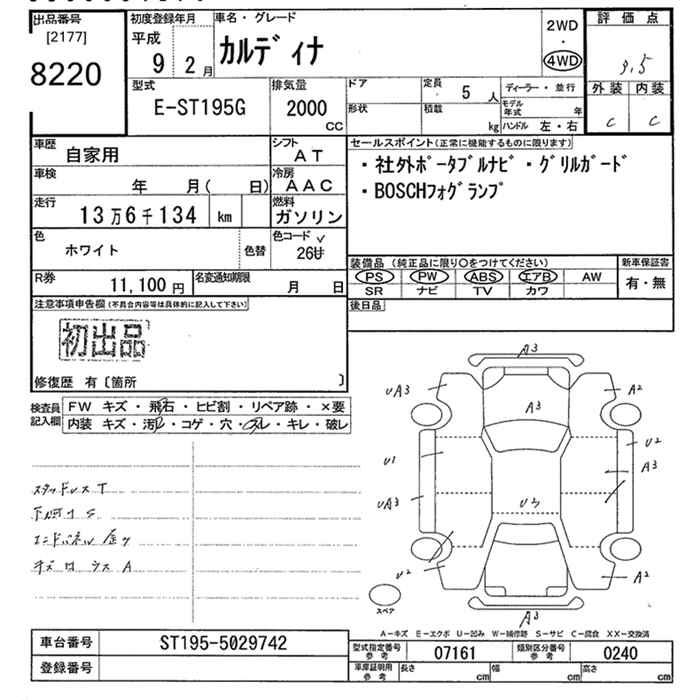 出品番号
[2177]
8220
初度登録年月
平成
9 2月
車名・グレード
カルディナ
2WD
・
4WD
評価点
3.5
外装 内装
C C
型式
E-ST195G
排気量
2000
CC
ドア
形状
定員
5人
積載
kg
ディーラー・並行
モデル年式 年
ハンドル 左・右
車歴
自家用
シフト
AT
車検
年 月( 日)
冷房
AAC
走行
13万6千134 km
燃料
ガソリン
色
ホワイト
色替
色コード
26
R券
11,100円
名変通知期限
月 日
セールスポイント(正常に機能するものに限ります)
・社外ポータブルナビ・グリルガード
・BOSCHフォグランプ
装備品(純正品に限り○をつけてください)
新車保証書
PS PW ABS エアB AW
有・無
SR ナビ TV カワ
後日品
注意事項申告欄(不具合内容等は具体的に記入して下さい)
初出品
修復歴 有〔箇所 〕
検査員記入欄
FW キズ・飛石・ヒビ割・リペア跡・×要
内装 キズ・汚レ・コゲ・穴・スレ・キレ・破レ
スタッドレスT
A3
UA3
A2
A3
U1
U2
A3
UA3
U3
U2
A2
スペア
A3
A-キズ E-エクボ U-凹み W-補修跡 S-サビ C-腐食 XX-交換済
車台番号
ST195-5029742
登録番号
型式指定番号
参考
07161
類別区分番号
参考
0240
車庫証明用
参考
長さ cm
幅 cm
高さ cm